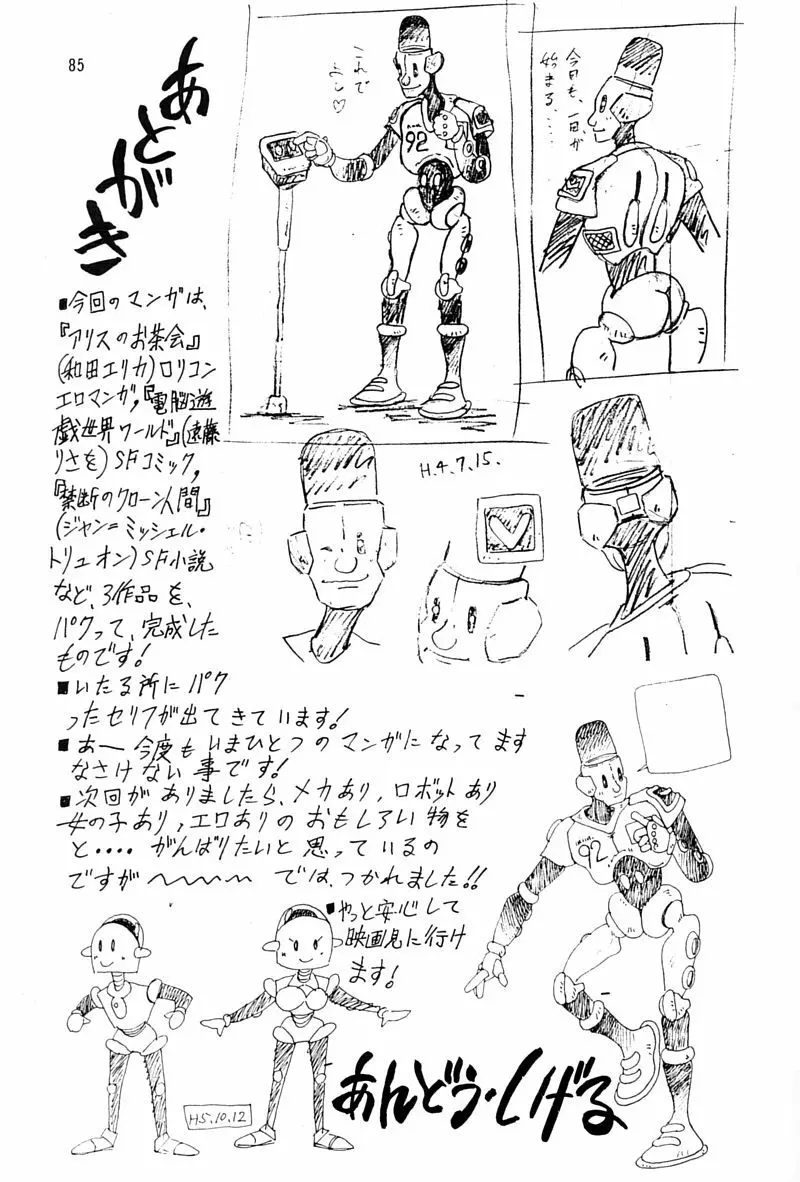 85
あとがき
これで
よし♡
92
今日も、一日が
始まる、・・・・
■今回のマンガは、
『アリスのお茶会』
(和田エリカ)ロリコン
エロマンガ,『電脳遊
戯世界ワールド』(遠藤
りさを)SFコミック,
『禁断のクローン人間』
(ジャン=ミッシェル・
トリュオン)SF小説
など、3作品を、
パクって、完成した
ものです!
■いたる所にパク
ったセリフが出てきています!
■あー今度もいまひとつのマンガになってます
なさけない事です!
■次回がありましたら、メカあり,ロボットあり
女の子あり,エロありのおもしろい物を
と・・・・がんばりたいと思っているの
ですが〜〜〜〜では、つかれました!!
■やっと安心して
映画見に行け
ます!
H.4.7.15.
92
H5.10.12
あんどう・しげる